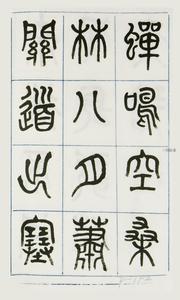 蟬鳴空桑
林八月蕭
關道出塞